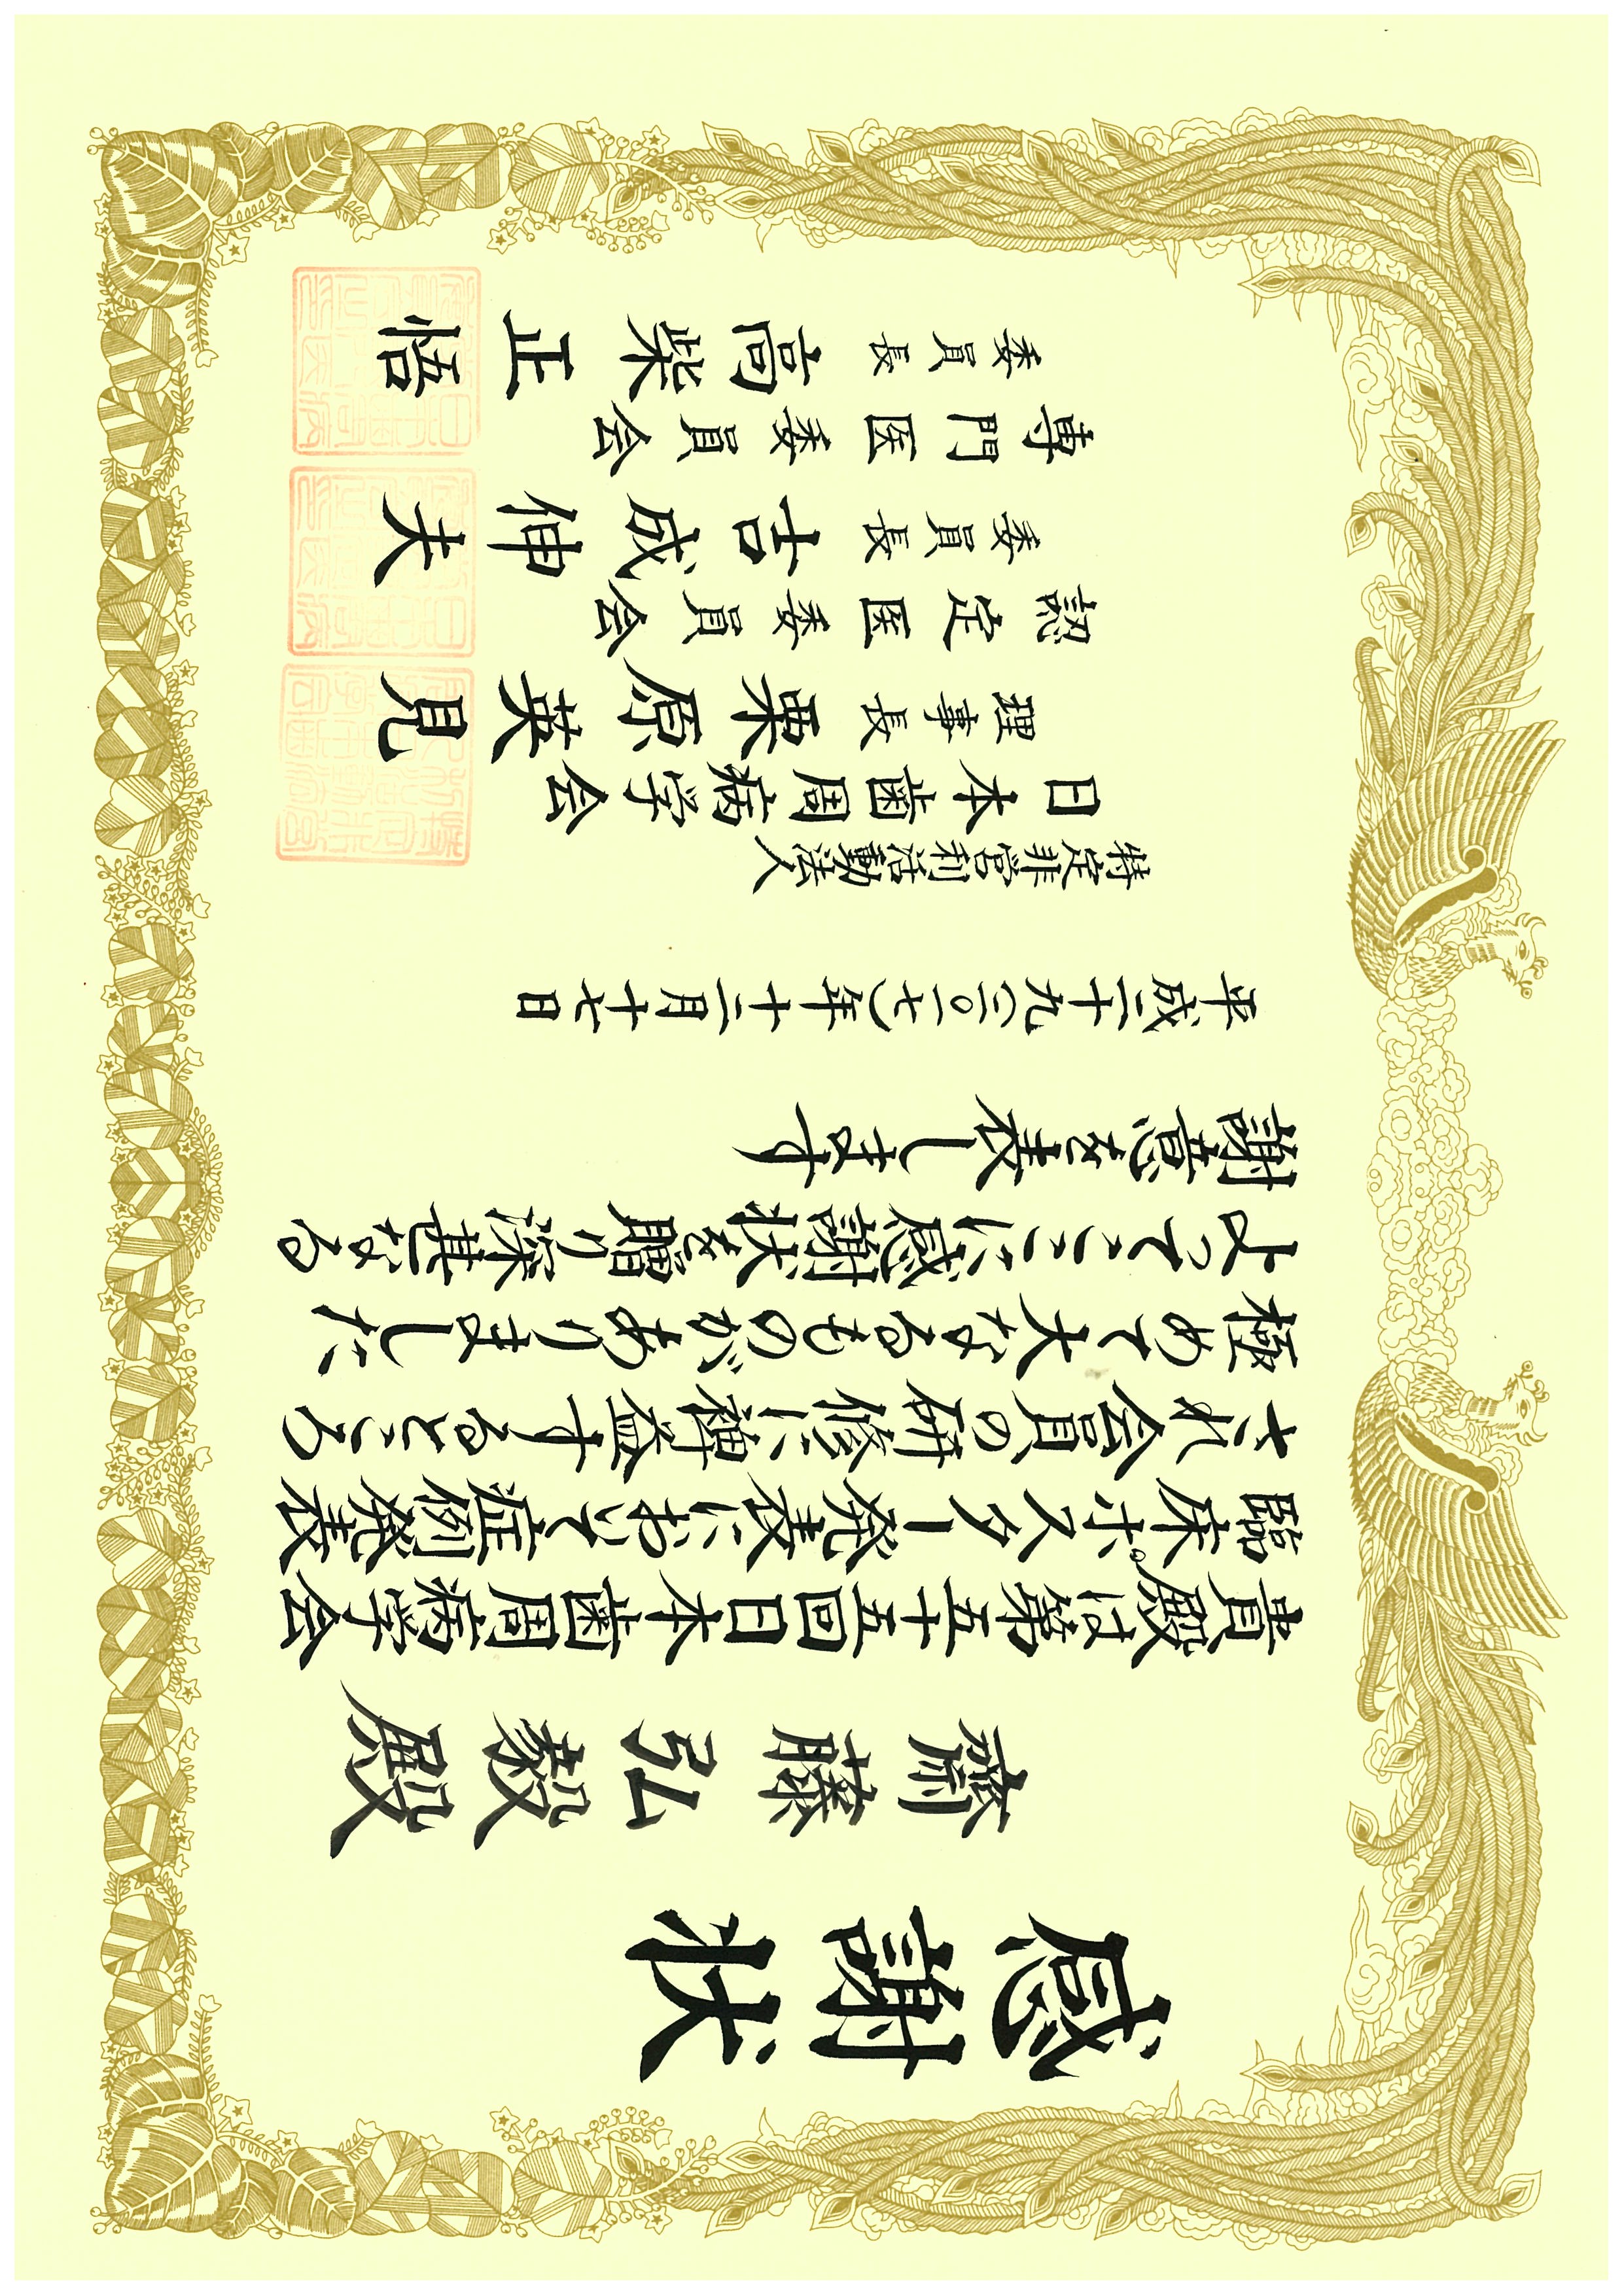 感謝状
齋藤弘毅殿
貴殿は第五十五回日本歯周病学会
臨床ポスター発表において症例発表
され会員の研修に裨益するところ
極めて大なるものがありました
よってここに感謝状を贈り深甚なる
謝意を表します
平成二十九(二〇一七)年十二月十七日
特定非営利活動法人
日本歯周病学会
理事長 栗原英見
認定医委員会
委員長 吉成伸夫
専門医委員会
委員長 高柴正悟